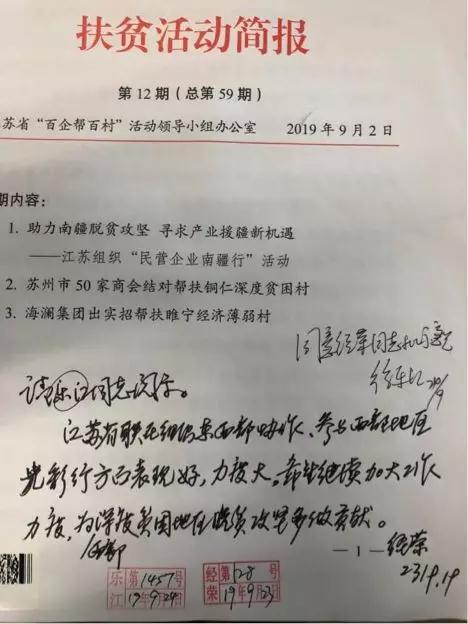 扶贫活动简报
第 12 期（总第 59 期）
苏省“百企帮百村”活动领导小组办公室 2019 年 9 月 2 日
期内容：
1. 助力南疆脱贫攻坚 寻求产业援疆新机遇
——江苏组织“民营企业南疆行”活动
2. 苏州市 50 家商会结对帮扶铜仁深度贫困村
3. 海澜集团出实招帮扶睢宁经济薄弱村
同意经荣同志批示意见
徐乐江
请乐江同志阅示。
江苏省联在组织东西部协作、参与西部地区
光彩行方面表现好，力度大。希望继续加大工作
力度，为深度贫困地区脱贫攻坚多做贡献。
— 1 — 经荣
乐 第1457号 经 第128号
江 19年9月24日 荣 19年9月23日